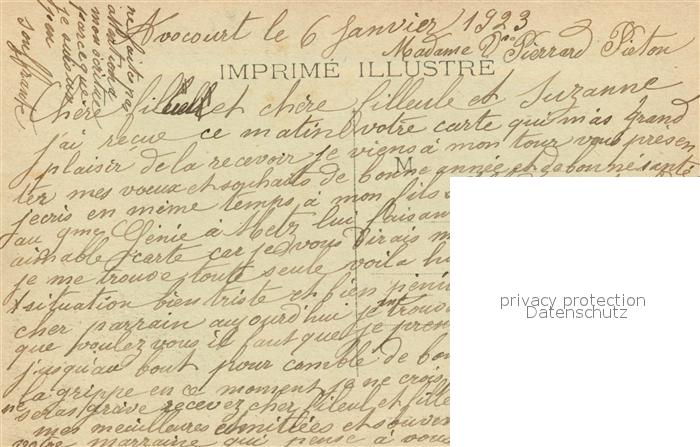 Avocourt le 6 Janvier 1923
Madame Vve Pierrard Pieton
IMPRIMÉ ILLUSTRÉ
Chère filleul et chère filleule et Suzanne
j'ai reçue ce matin votre carte qui m'as grand
plaisir de la recevoir je viens à mon tour vous présen
M
ter mes voeux et souhaits de bonne année et de bonne santé
jecris en même temps à mon fils
au Génie à Metz lui faisan
aimable carte car je vous dirais
je me trouve toute seule voila
situation bien triste et bien
cher parrain aujourd'hui je trouv
que voulez vous il faut que je pren
jusqu'au bout pour comblé de bon
la grippe en ce moment je ne crois
ne seras grave recevez cher filleul et fille
mes meilleures amitiées et souven
votre marraine qui pense à vous
ne faites ne
attention a
mon écriture
parceque
je suis un
peu
souffrante
privacy protection
Datenschutz